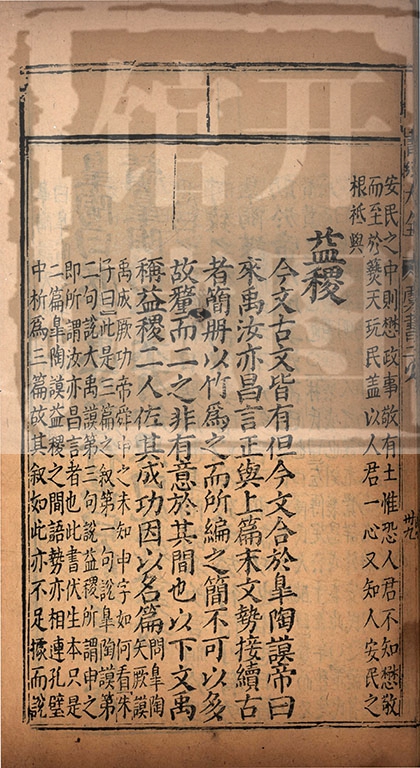 安民之中則懋政事敬有土惟恐人君不知懋敬
而至於䙝天玩民盖以人君一心又知人安民之
根柢與
益稷
今文古文皆有但今文合於臯陶謨帝曰
來禹汝亦昌言正與上篇末文勢接續古
者簡冊以竹為之而所編之簡不可以多
故釐而二之非有意於其間也以下文禹
稱益稷二人佐其成功因以名篇
問臯陶矢厥謨
禹成厥功帝舜申之未知申字如何看朱
子曰此是三篇之叙第一句說臯陶謨第
二句說大禹謨第三句說益稷所謂申之
即所謂汝亦昌言者也此書伏生本只是
二篇臯陶謨益稷之間語勢亦相連孔壁
中析為三篇故其叙如此亦不足據而說